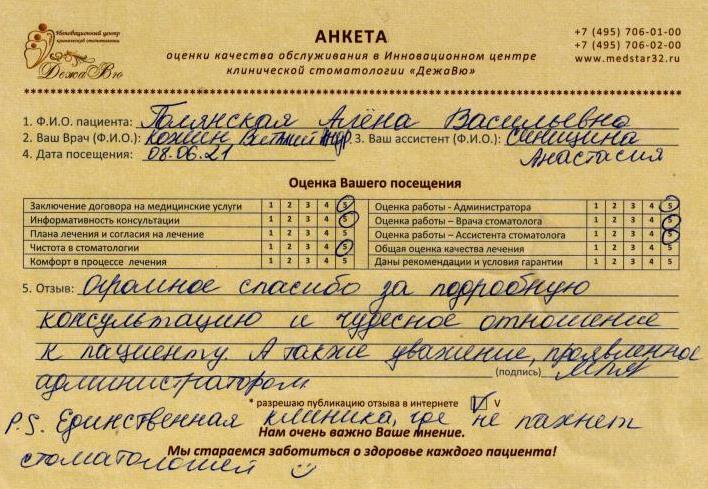 Инновационный центр
клинической стоматологии
ДежаВю
АНКЕТА
оценки качества обслуживания в Инновационном центре
клинической стоматологии «ДежаВю»
+7 (495) 706-01-00
+7 (495) 706-02-00
www.medstar32.ru
1. Ф.И.О. пациента: Полянская Алёна Васильевна
2. Ваш Врач (Ф.И.О.): 3. Ваш ассистент (Ф.И.О.): Синицина
4. Дата посещения: 08.06.21 Анастасия
Оценка Вашего посещения
Заключение договора на медицинские услуги 1 2 3 4 5 Оценка работы - Администратора 1 2 3 4 5
Информативность консультации 1 2 3 4 5 Оценка работы – Врача стоматолога 1 2 3 4 5
Плана лечения и согласия на лечение 1 2 3 4 5 Оценка работы – Ассистента стоматолога 1 2 3 4 5
Чистота в стоматологии 1 2 3 4 5 Общая оценка качества лечения 1 2 3 4 5
Комфорт в процессе лечения 1 2 3 4 5 Даны рекомендации и условия гарантии 1 2 3 4 5
5. Отзыв: Огромное спасибо за подробную
консультацию и чудесное отношение
к пациенту. А также уважение, проявленное
администратором (подпись)
* разрешаю публикацию отзыва в интернете V
P.S. Единственная клиника, где не пахнет
Нам очень важно Ваше мнение.
Мы стараемся заботиться о здоровье каждого пациента!
стоматологией